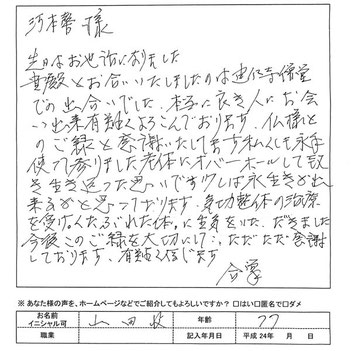 河本 様
先日はお世話になりました
貴殿とお合いいたしましたのは
での出合いでした。本当に良き人にお会
い出来有難くよろこんでおります。仏様と
のご縁と感謝いたしております私くしも永年
使って参りました老体にオバーホールして戴
き生き返った思いです少しは永生きがれ
来るかと思っております。気功整体の治療
を受けくたぶれた体。に生気をいただきました
今後このご縁を大切にして、ただただ感謝
しております。有難く信じます
合掌
※あなた様の声を、ホームページなどでご紹介してもよろしいですか？ □はい□匿名で□ダメ
お名前 イニシャル可 山田 年齢 77
職業 記入年月日 平成24年 月 日